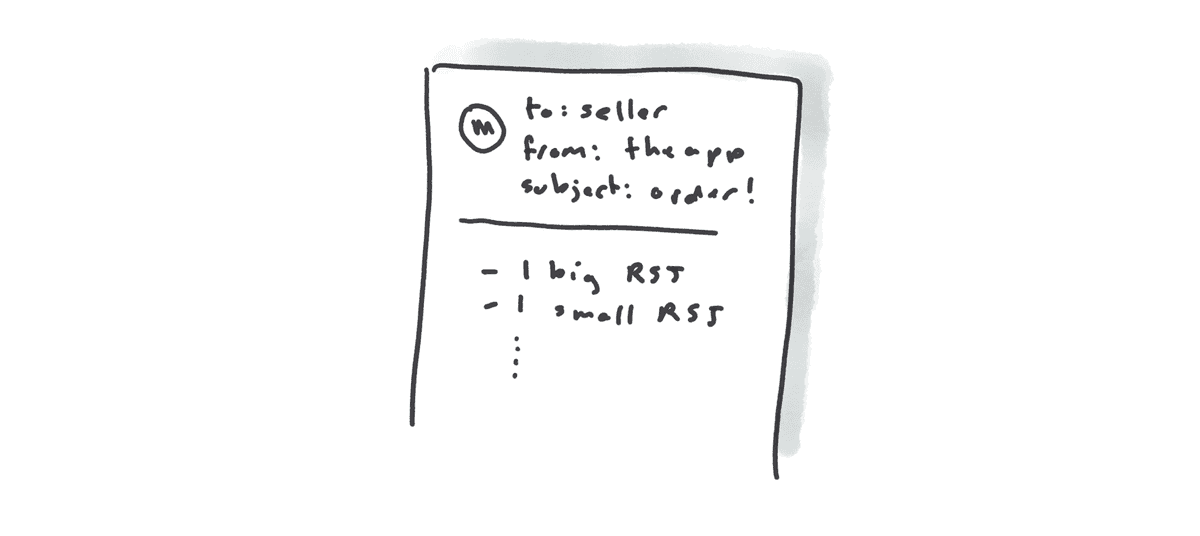 m
to: seller
from: the app
subject: order!
- 1 big RSJ
- 1 small RSJ